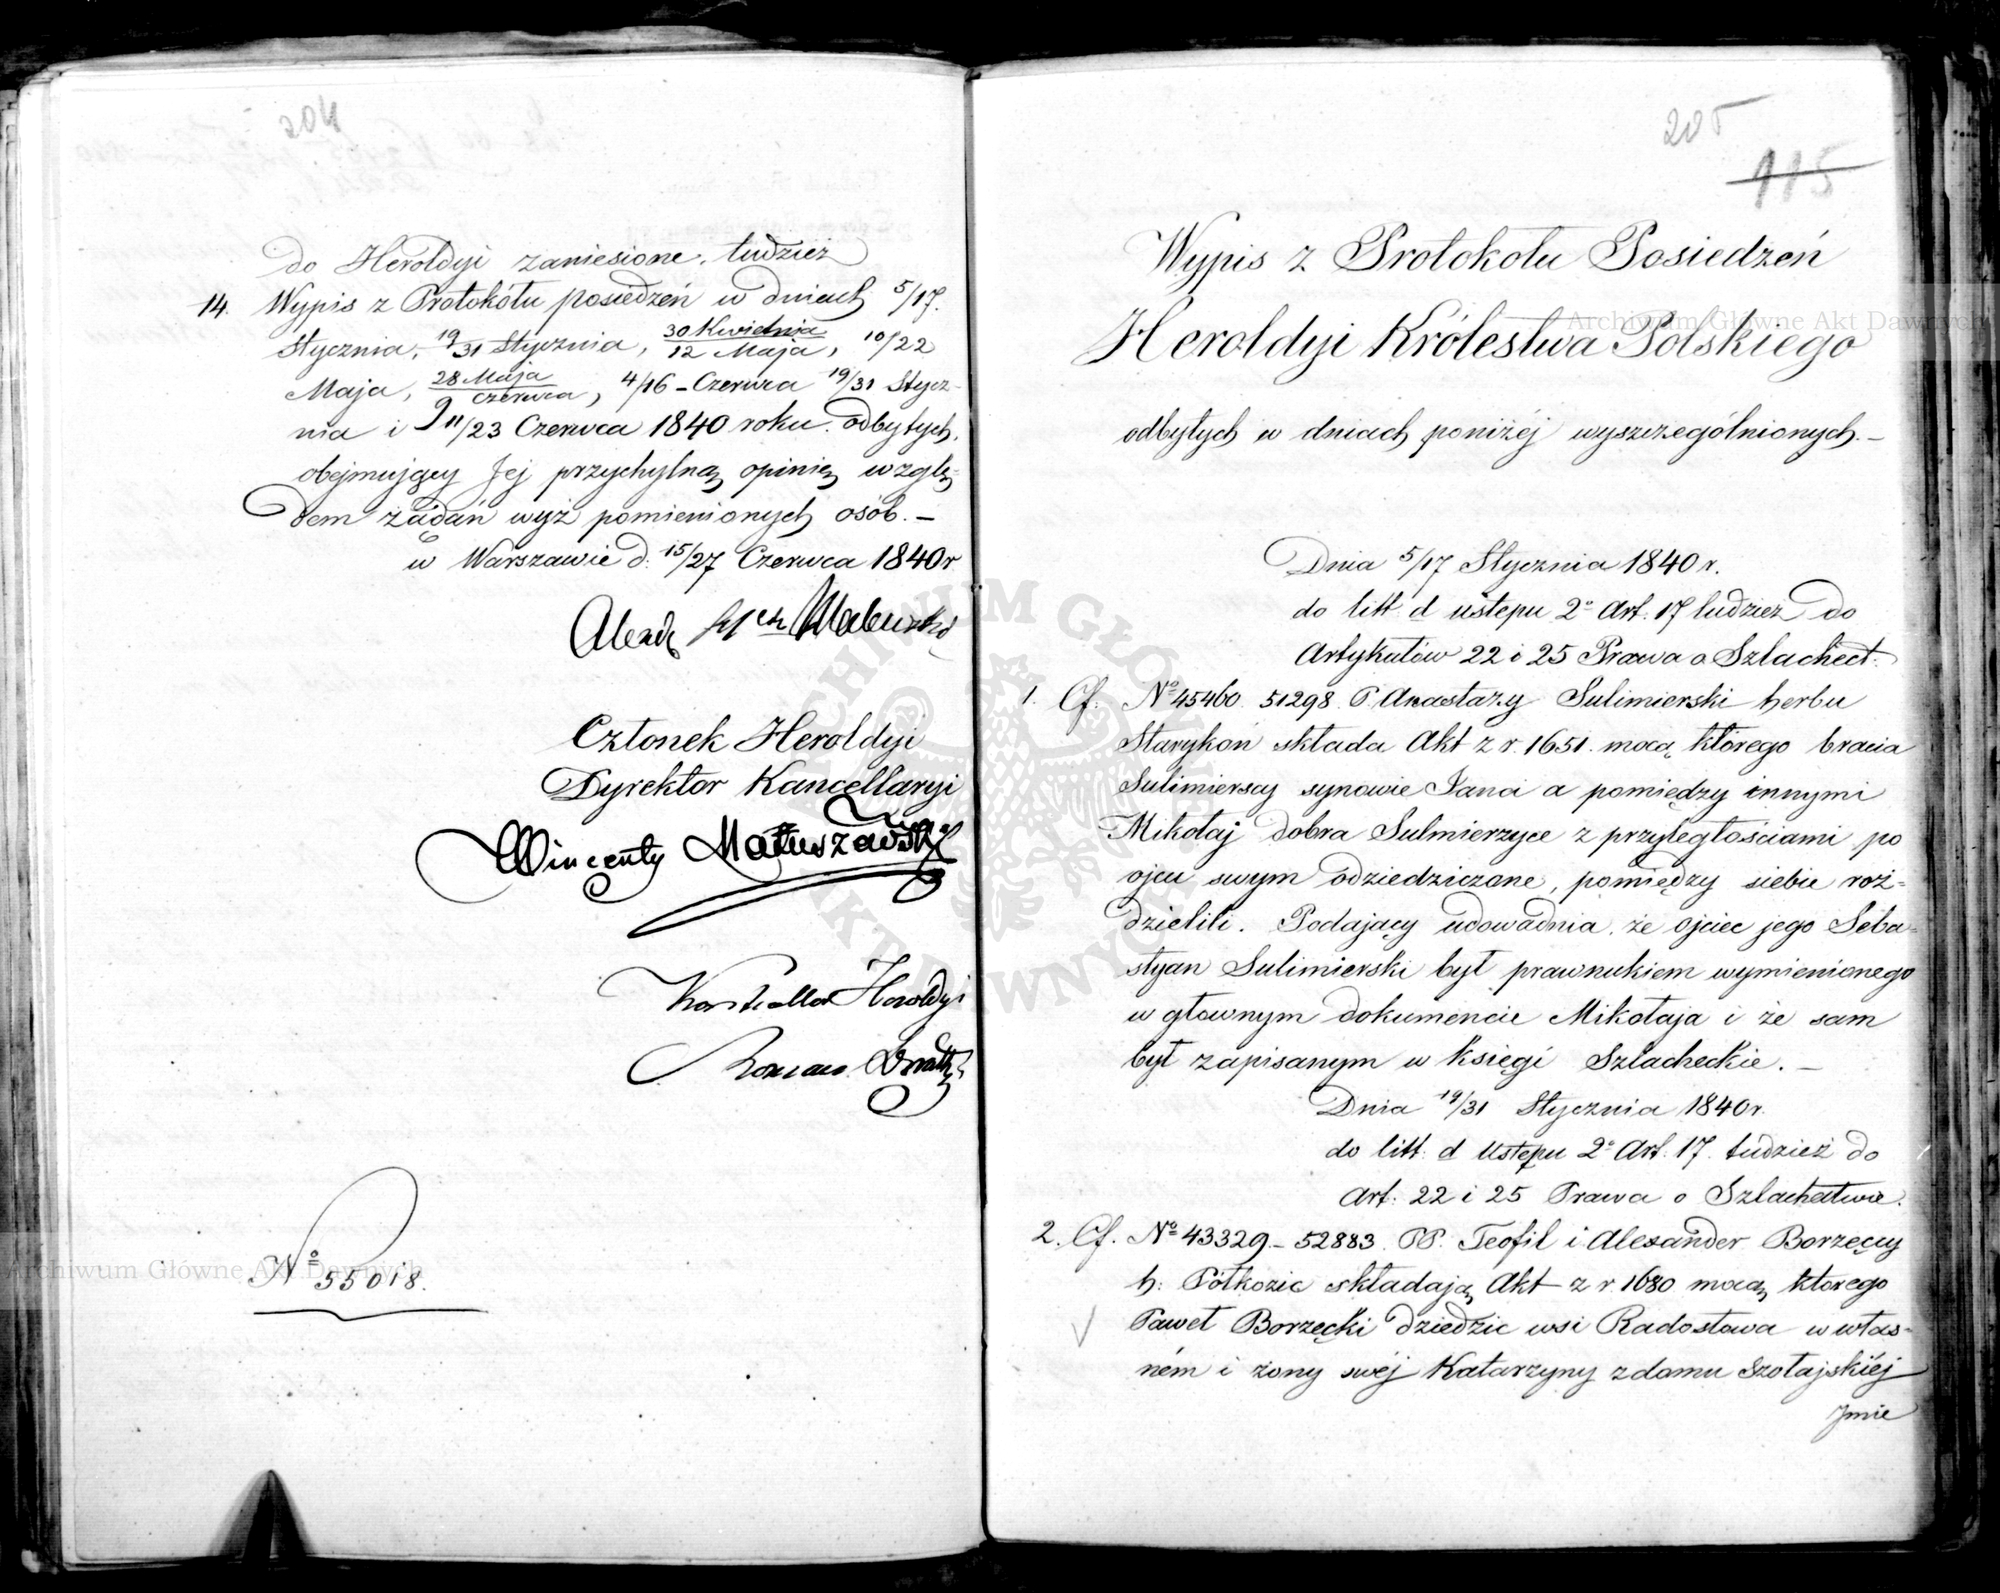 204
do Heroldyi zaniesione, tudzież
14. Wypis z Protokółu posiedzeń w dniach 5/17.
Stycznia, 19/31 Stycznia, 30 Kwietnia/12 Maja, 10/22
Maja, 28 Maja/9 Czerwca, 4/16 - Czerwca 19/31 Stycz-
nia i 11/23 Czerwca 1840 roku. odbytych,
obejmujący Jej przychylną opinią wzglę-
dem żądań wyż pomienionych osób. -
w Warszawie d. 15/27 Czerwca 1840 r
Członek Heroldyi
Dyrektor Kancellaryi
Wincenty Matuszewski
Heroldyi
Roman
No 55018.
205
115
Wypis z Protokołu Posiedzeń
Heroldyi Królestwa Polskiego
odbytych w dniach poniżéj wyszczególnionych. -
Dnia 5/17 Stycznia 1840 r.
do litt d ustępu 2o Art. 17 tudzież do
Artykułów 22 i 25 Prawa o Szlachect.
1. Cf. No 45460. 51298. P. Anastazy Sulimierski herbu
Starykoń składa Akt z r. 1651. mocą którego bracia
Sulimierscy synowie Jana a pomiędzy innymi
Mikołaj dobra Sulmierzyce z przyległościami po
ojcu swym odziedziczone, pomiędzy siebie roz=
dzielili. Podający udowadnia, że ojciec jego Seba=
styan Sulimierski był prawnukiem wymienionego
w głownym dokumencie Mikołaja i że sam
był zapisanym w księgi Szlacheckie. -
Dnia 19/31 Stycznia 1840 r.
do litt. d Ustępu 2o Art. 17. tudzież do
Art. 22 i 25 Prawa o Szlachectwie.
2. Cf. No 43329 - 52883. PP. Teofil i Alexander Borzęccy
h. Półkozic składają Akt z r. 1680 mocą ktorego
Paweł Borzęcki dziedzic wsi Radostowa w włas=
ném i żony swéj Katarzyny z domu Szołajskiéj
Jmie
Archiwum Główne Akt Dawnych
Archiwum Główne Akt Dawnych
ARCHIWUM GŁÓWNE AKT DAWNYCH